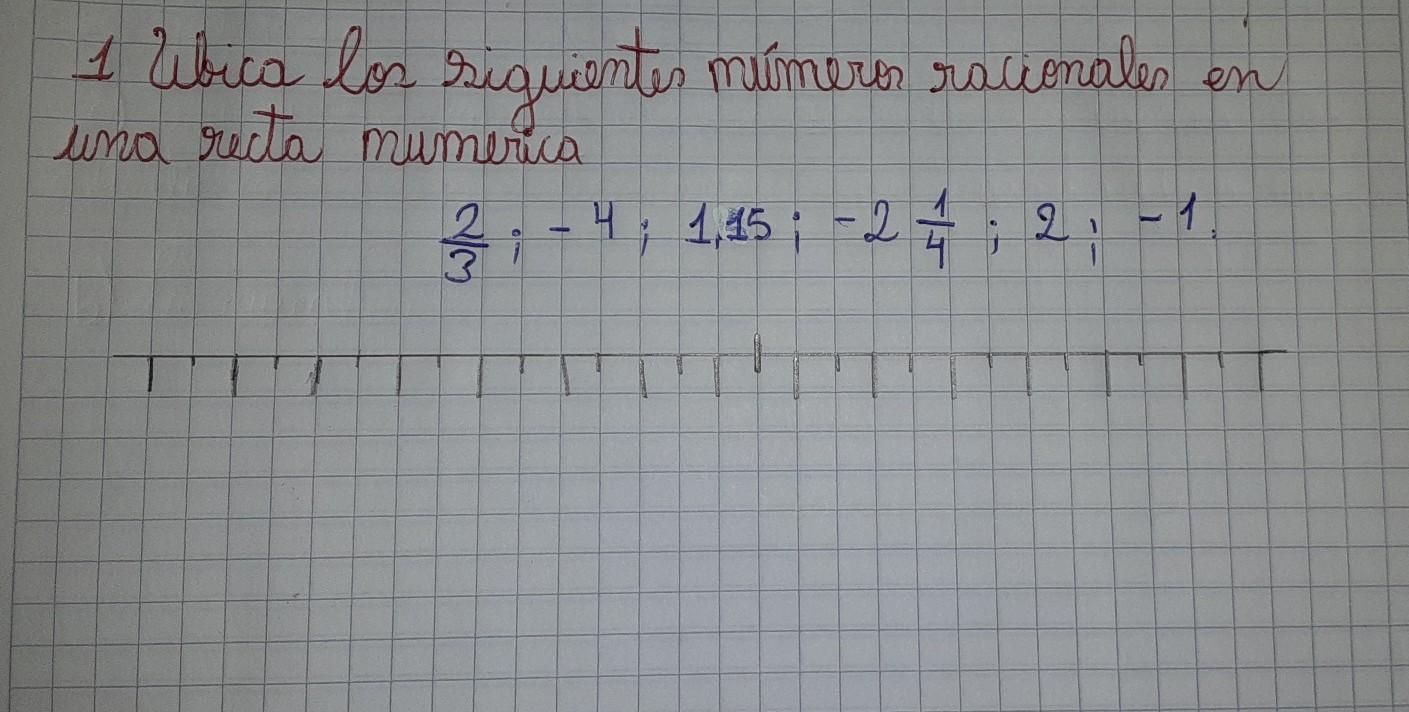 1 Ubica los siguientes números racionales en
una recta numerica
2/3 ; - 4 ; 1,15 ; - 2 1/4 ; 2 ; - 1.